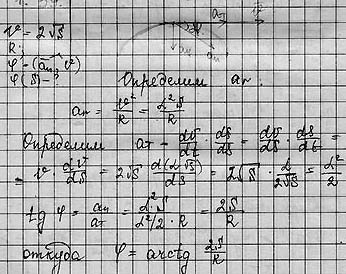 v = 2√S
R;
φ - (aₙ, v)
φ(S) - ?
Определим aₙ:
aₙ = v²/R = α²S/R
Определим aτ = dv/dt · dS/dS = dv/dS · dS/dt =
= v · dv/dS = 2√S d(α√S)/dS = 2√S · α/2√S = α²/2
tg φ = aₙ/aτ = α² · S/α²/2 · R = 2S/R
откуда φ = arctg 2S/R